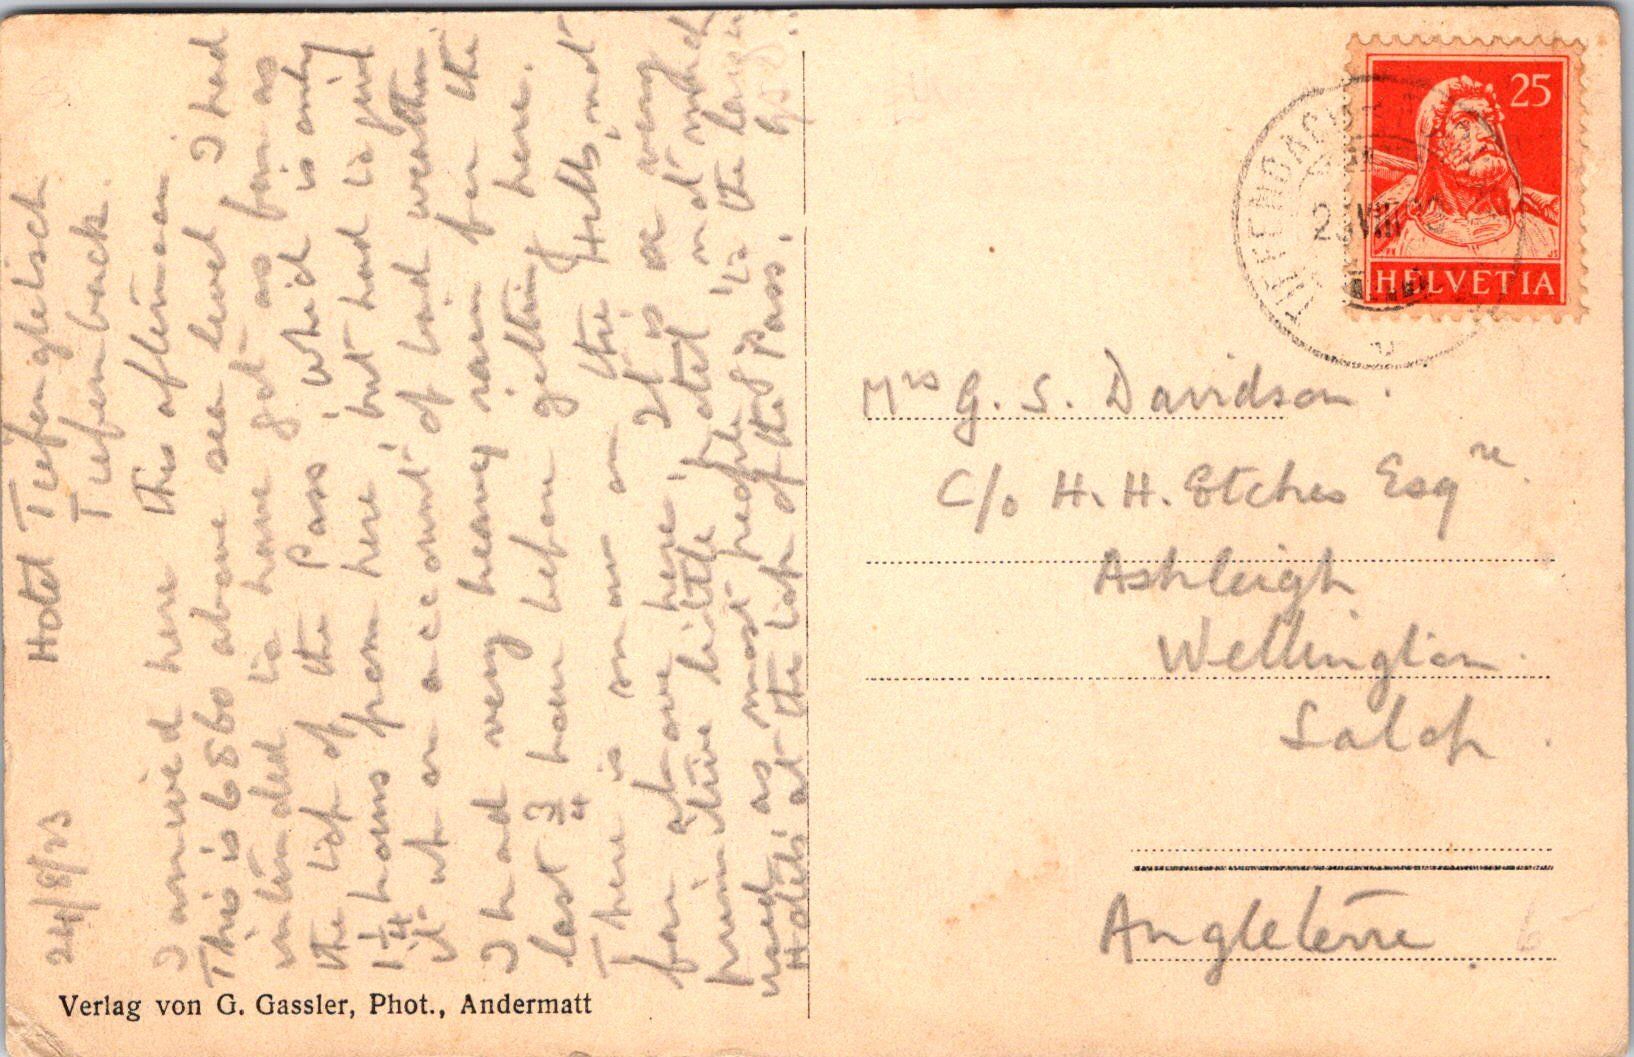 24/8/23 Hotel Tiefengletsch
Tiefenback.
I arrived here this afternoon
This is 6860 above sea level I had
intended to have got as far as
the top of the Pass, which is only
1¼ hours from here, but had to give
it up on account of bad weather.
I had very heavy rain for the
last ¾ hour before getting here.
There is snow on the Hills, not
far above here, It is a very
primitive little Hotel, not much
used, as most people go to the large
Hotels at the top of the Pass.
GSD.
Verlag von G. Gassler, Phot., Andermatt
25
HELVETIA
TIEFENBACH
Mrs G. S. Davidson.
C/o H. H. Etches Esqre
Ashleigh
Wellington.
Salop.
Angleterre.